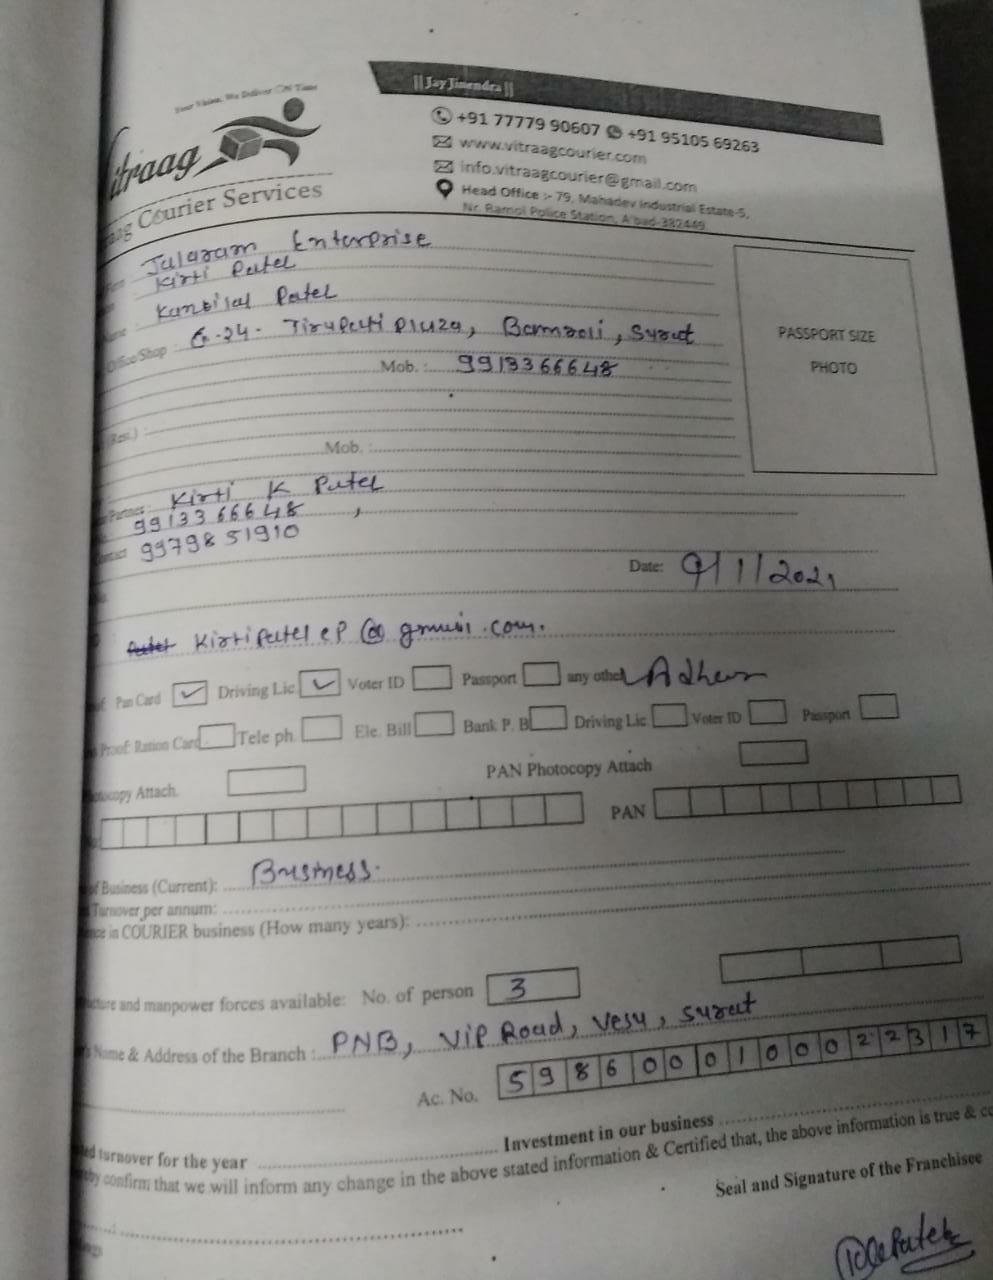 || Jay Jinendra ||
Your Vision, We Deliver On Time
+91 77779 90607 +91 95105 69263
www.vitraagcourier.com
info.vitraagcourier@gmail.com
Head Office :- 79, Mahadev Industrial Estate-5,
Nr. Ramol Police Station, A'bad-382449
Vitraag
Courier Services
Jalaram Enterprise
Kirti Patel
Patel
Office/Shop : G-24- Tirupati Plaza, Bamroli, Surat
Mob. : 9913366648
PASSPORT SIZE
PHOTO
(Resi.) :
Mob. :
Partner : Kirti K Patel
9913366648 ,
9979851910
Date: 9/1/2021
Kirtipatel eP @ gmail.com.
Pan Card Driving Lic Voter ID Passport any other Adhar
Proof: Ration Card Tele ph. Ele. Bill Bank P. B Driving Lic Voter ID Passport
Attach. PAN Photocopy Attach
PAN
of Business (Current): Business.
Turnover per annum:
in COURIER business (How many years):
and manpower forces available: No. of person 3
Name & Address of the Branch : PNB, VIP Road, Vesu, Surat
Ac. No. 5986000100022317
turnover for the year Investment in our business
confirm that we will inform any change in the above stated information & Certified that, the above information is true &
Seal and Signature of the Franchisee
Patel